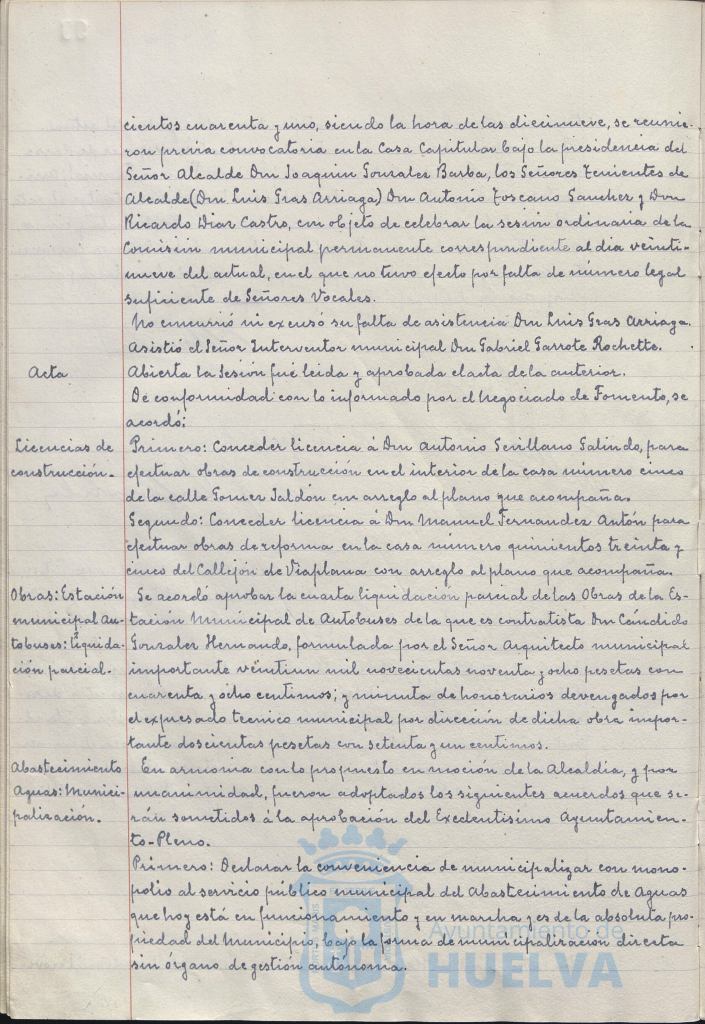 cientos cuarenta y uno, siendo la hora de las diecinueve, se reunie-
ron previa convocatoria en la Casa Capitular bajo la presidencia del
Señor Alcalde Don Joaquin Gonzalez Barba, los Señores Tenientes de
Alcalde (Don Luis Gras Arriaga) Don Antonio Toscano Sanchez y Don
Ricardo Diaz Castro, con objeto de celebrar la sesión ordinaria de la
Comisión municipal permanente correspondiente al dia veinti-
nueve del actual, en el que no tuvo efecto por falta de número legal
suficiente de Señores Vocales.
No concurrió ni excusó su falta de asistencia Don Luis Gras Arriaga.
Asistió el Señor Interventor municipal Don Gabriel Garrote Rochette.
Acta
Abierta la Sesión fué leida y aprobada el acta de la anterior.
De conformidad con lo informado por el Negociado de Fomento, se
acordó:
Licencias de
construcción.-
Primero: Conceder licencia á Don Antonio Sevillano Galindo, para
efectuar obras de construcción en el interior de la casa número cinco
de la calle Gomez Jaldón con arreglo al plano que acompaña.
Segundo: Conceder licencia á Don Manuel Fernandez Antón para
efectuar obras de reforma en la casa número quinientos treinta y
cinco del Callejón de Viaplana con arreglo al plano que acompaña.
Obras: Estación
municipal Au-
tobuses: liquida-
ción parcial.
Se acordó aprobar la cuarta liquidación parcial de las Obras de la Es-
tación Municipal de Autobuses de la que es contratista Don Cándido
Gonzalez Hernando, formulada por el Señor Arquitecto municipal
importante veintiun mil novecientas noventa y ocho pesetas con
cuarenta y ocho centimos; y minuta de honorarios devengados por
el expresado tecnico municipal por dirección de dicha obra impor-
tante doscientas pesetas con setenta y un centimos.
Abastecimiento
Aguas: Munici-
palización.
En armonia con lo propuesto en moción de la Alcaldia, y por
unanimidad, fueron adoptados los siguientes acuerdos que se-
rán sometidos á la aprobación del Excelentisimo Ayuntamien-
to-Pleno.
Primero: Declarar la conveniencia de municipalizar con mono-
polio al servicio público municipal del Abastecimiento de Aguas
que hoy está en funcionamiento y en marcha y es de la absoluta pro-
piedad del Municipio, bajo la forma de municipalización directa
sin órgano de gestión autónoma.
Ayuntamiento de
HUELVA